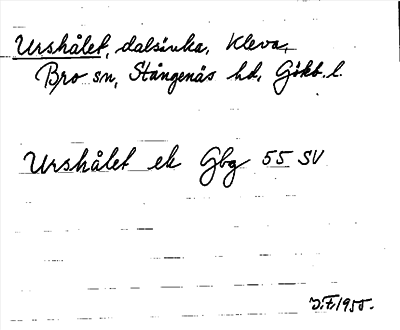 Urshålet, dalsänka, Kleva,
Bro sn, Stångenäs hd, Götb. l.
Urshålet ek Gbg 55 SV
J.F. 1955.